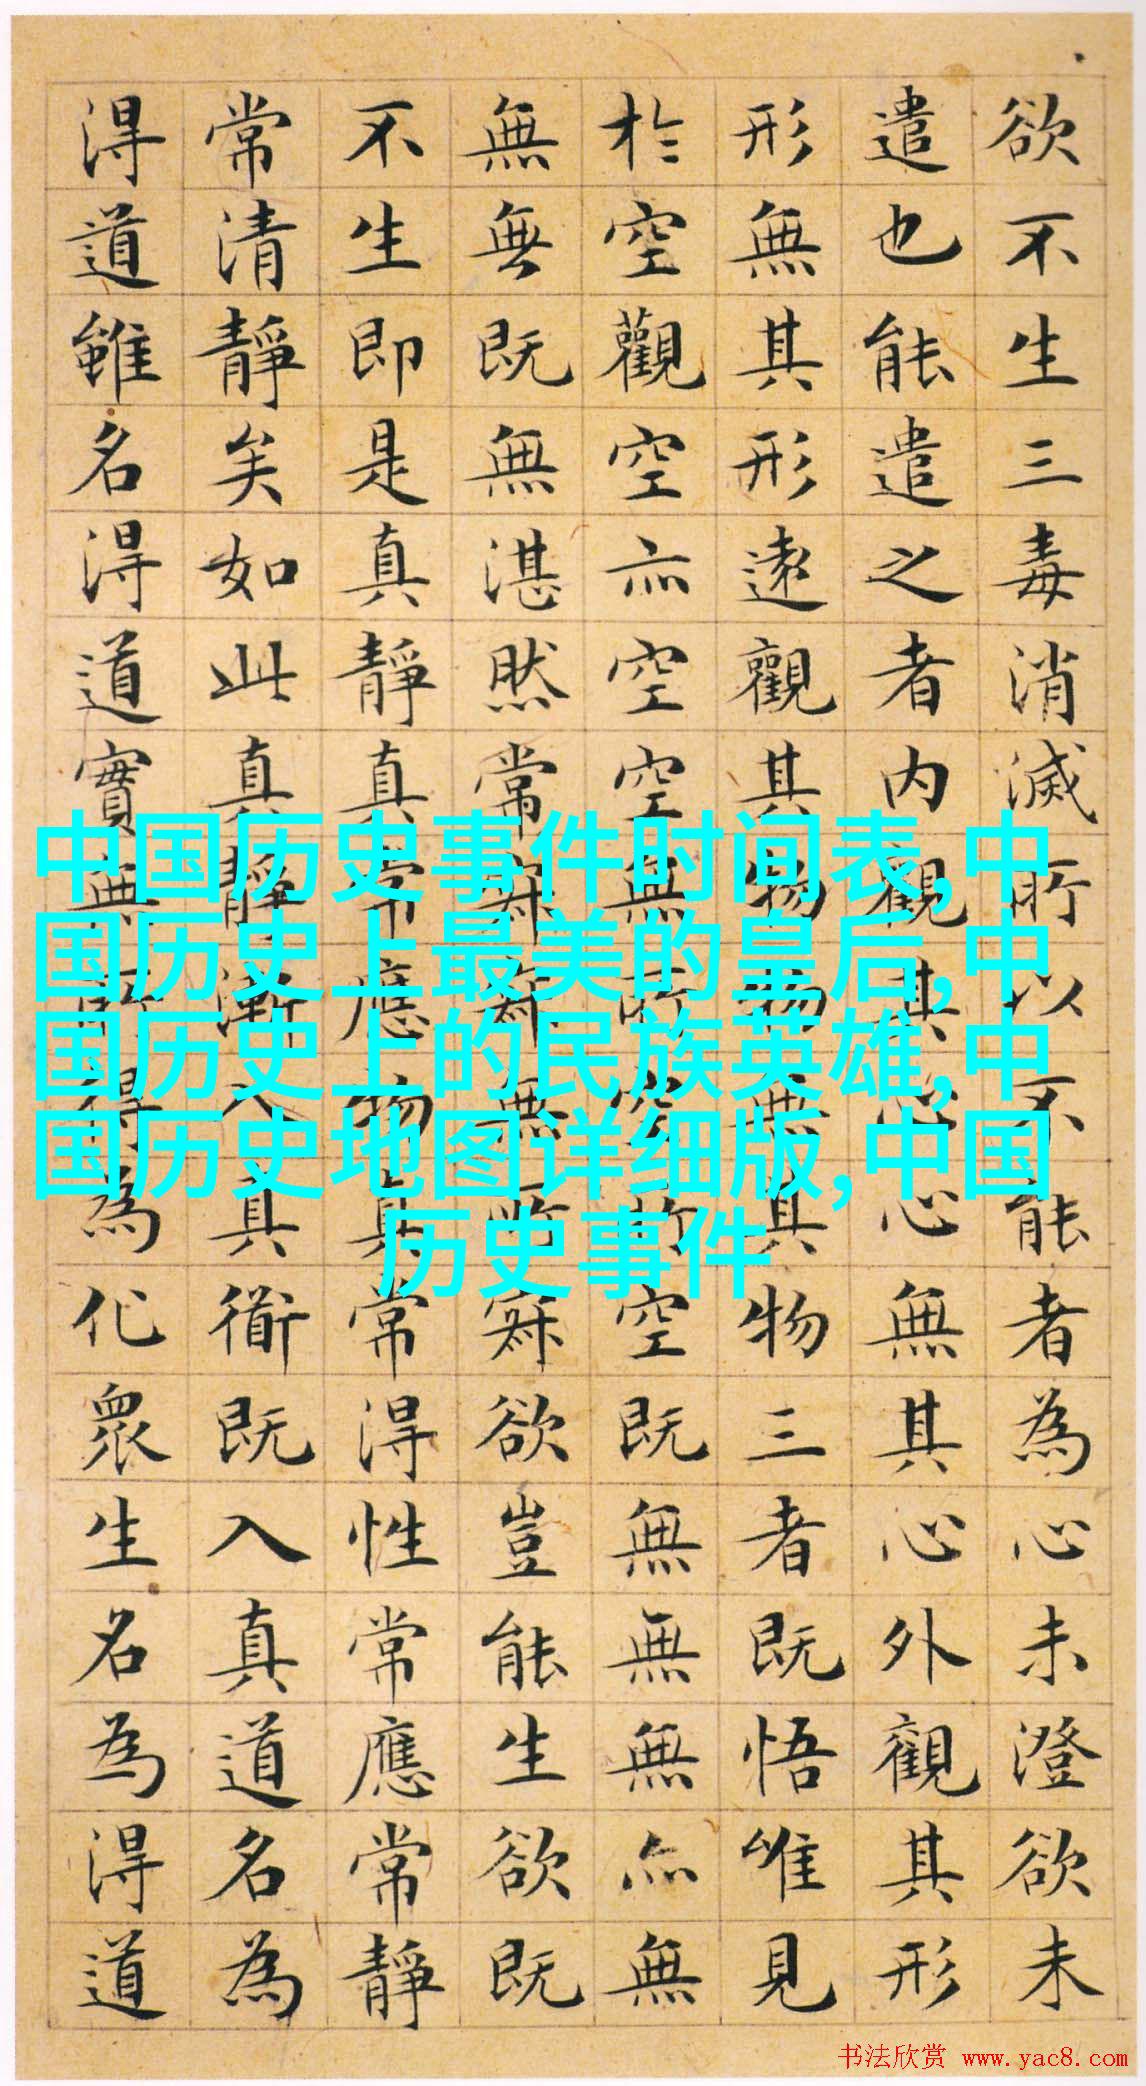 欲不生三毒消滅所以不能者為心未澄欲未
遣也能遣之者内觀其心心無其心外觀其形
形無其形遠觀其物物無其物三者既悟唯見
於空觀空亦空空無所空所空既無無無亦無
無無既無湛然常寂寂無所寂欲豈能生欲既
不生即是真靜真常應物真常得性常應常靜
常清靜矣如此真靜漸入真衜既入真道名為
得道雖名得道實無所得為化眾生名為得道
中国历史事件时间表,中
国历史上最美的皇后,中
国历史上的民族英雄,中
国历史地图详细版,中国
历史事件
书法欣赏 www.yac8.com